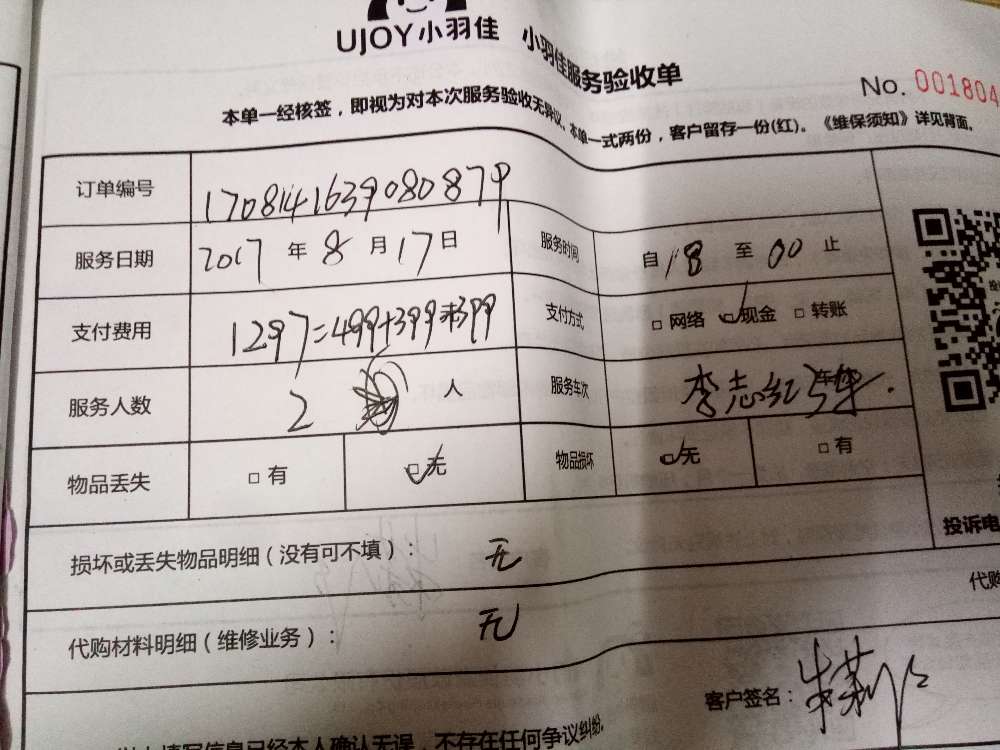 UJOY小羽佳 小羽佳服务验收单
No. 001804
本单一经核签，即视为对本次服务验收无异议。本单一式两份，客户留存一份(红)。《维保须知》详见背面。
订单编号 1708141639080879
服务日期 2017 年 8 月 17 日 服务时间 自 18 至 00 止
支付费用 1297=499+399+399 支付方式 □ 网络 ☑ 现金 □ 转账
服务人数 2 人 服务车次 李志红
物品丢失 □ 有 ☑ 无 物品损坏 ☑ 无 □ 有
投诉电
损坏或丢失物品明细（没有可不填）： 无
代购
代购材料明细（维修业务）： 无
客户签名：
填写信息已经本人确认无误，不存在任何争议纠纷